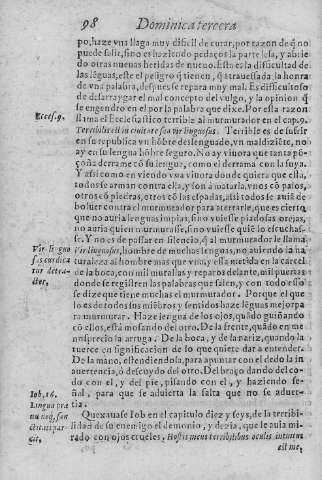 98 Dominica tercera
po, haze vna llaga muy dificil de curar, por razon de q̃ no
puede salir, sino es haziendo pedaços la parte lesa, y abriẽ
do otras nueuas heridas de nueuo. Esta es la dificultad de
las lẽguas, este el peligro q̃ tienen, q̃ atrauessada la honra
de vna palabra, despues se repara muy mal. Es dificultoso
de desarraygar el mal concepto del vulgo, y la opinion q̃
se engendrò en el por la palabra que dixe. Por esta razon
Eccles. 9.
llama el Ecclesiastico terrible al murmurador en el cap. 9.
Terribilis est in ciuitate sua vir linguosus. Terrible es de sufrir
en su republica vn hõbre deslenguado, vn maldiziẽte, no
ay en su lengua hõbre seguro. No ay viuora que tanta põ-
çoña derrame cõ su lengua, como el derrama con la suya.
Y assi como en viendo vna viuora donde quiera que està,
todos se arman contra ella, y son a matarla, vnos cõ palos,
otros cõ piedras, otros cõ las espadas, assi todos se auiã de
boluer contra el murmurador para enterrarle, que es cierto
que no auria lenguas impias, sino vuiesse piadosas orejas,
no auria quien murmurasse, sino vuiesse quiẽ lo escuchas-
se. Y no es de passar en silencio, q̃ al murmurador le llama
Vir linguosus curdicatur detractor.
Vir linguosus, hombre de muchas lenguas, no auiendo la na
turaleza al hombre mas que vna, y essa metida en la carcel
de la boca, con mil murallas y reparos delante, mil puertas
donde se registren las palabras que salen, y con todo esso
se dize que tiene muchas el murmurador. Porque el que
lo es de todos sus miẽbros y sentidos haze lẽguas mejor pa
ra murmurar. Haze lengua de los ojos, quãdo guiñando
cõ ellos, està mofando del otro. De la frente, quãdo en me
nosprecio la arruga. De la boca, y de la nariz, quando la
tuerce en significacion de lo que quiere dar a entender.
De la mano, estendiendola, para apuntar con el dedo la in
aduertencia, ò descuydo del otro. Del braço dando del co-
do con el, y del pie, pisando con el, y haziendo se-
ñal, para que se aduierta la falta que no se aduer-
tia.
Iob, 16.
Quexauase Iob en el capitulo diez y seys, de la terribi-
lidad de su enemigo el demonio, y dezia, que le aula mi-
rado con ojos crueles, Hostis meus terribilibus oculis intuitus
est me,